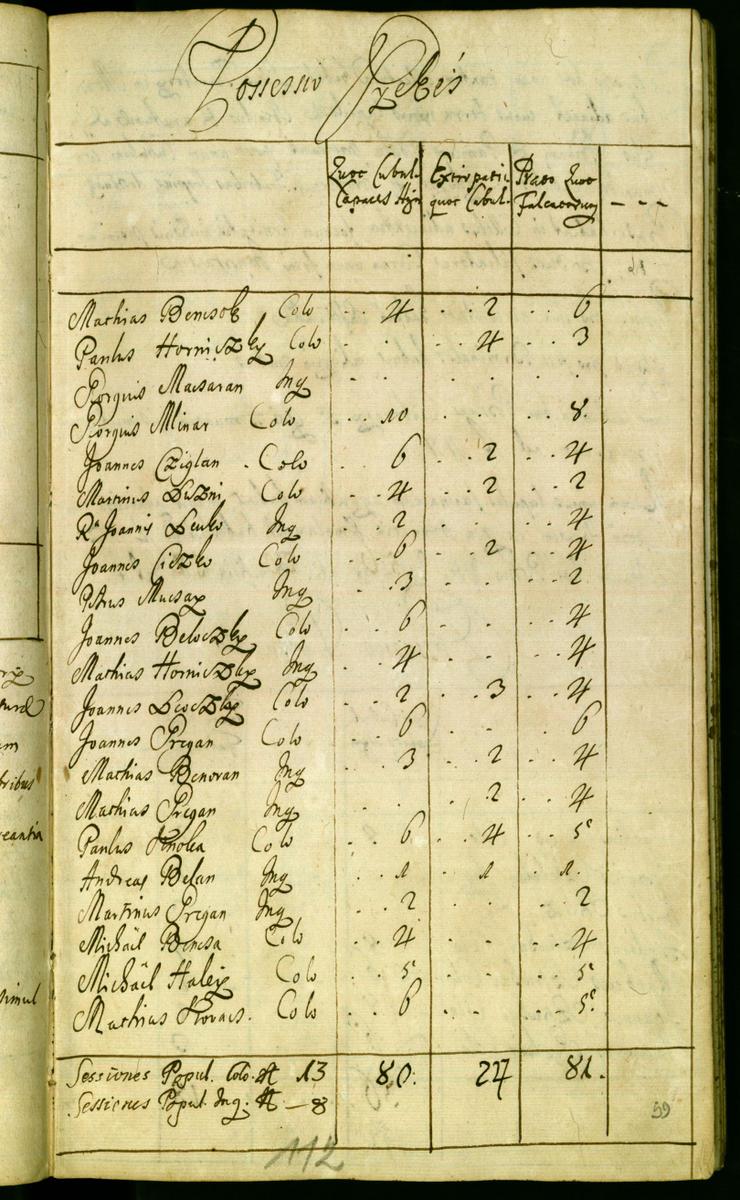 Possessio Przibis
Quot Cubul. Capaces Hyem
Extirpatii quot Cubul.
Prato Quot Falcatorum
- - -
Mathias Bencsok Colo . . 4 . . 2 . . 6
Paulus Horniczky Colo . . . . 4 . . 3
Georgius Macsaran Inq . . . . . .
Georgius Mlinar Colo . . 10 . . . . 8.
Joannes Cziglan . Colo . . 6 . . 2 . . 4
Martinus Luzni Colo . . 4 . . 2 . . 2
Ra Joannis Lenko Inq . . 2 . . . . 4
Joannes Ciczko Colo . . 6 . . 2 . . 4
Petrus Mucsay Inq . . 3 . . . . 2
Joannes Beloczky Colo . . 6 . . . . 4
Mathias Horniczky Inq . . 4 . . . . 4
Joannes Lwoczky Colo . . 2 . . 3 . . 4
Joannes Pregan Colo . . 6 . . . . 6
Mathias Benovan Inq . . 3 . . 2 . . 4
Mathias Pregan Inq . . . . 2 . . 4
Paulus Colo . . 6 . . 4 . . 5
Andreas Belan Inq . . 1 . . 1 . . 1.
Martinus Pregan Inq . . 2 . . . . 2
Michäel Bencsa Colo . . 4 . . . . 4
Michäel Haley Colo . . 5 . . . . 5
Mathias Kovacs. Colo . . 6 . . . . 5
Sessiones Popul. Colo. 13 80. 24 81.
Sessiones Popul. Inq. — 8
59
112